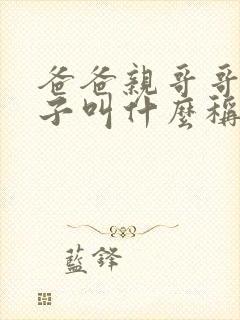 爸爸親哥哥
子叫什麼稱
藍鋒